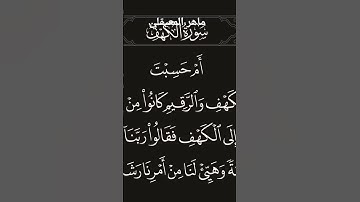 ماهر المعيقلي
سُورَةُ الْكَهْفِ
أَمْ حَسِبْتَ
كَهْفِ وَالرَّقِيمِ كَانُوا۟ مِنْ
إِلَى الْكَهْفِ فَقَالُوا۟ رَبَّنَا
ةً وَهَيِّئْ لَنَا مِنْ أَمْرِنَا رَشَ